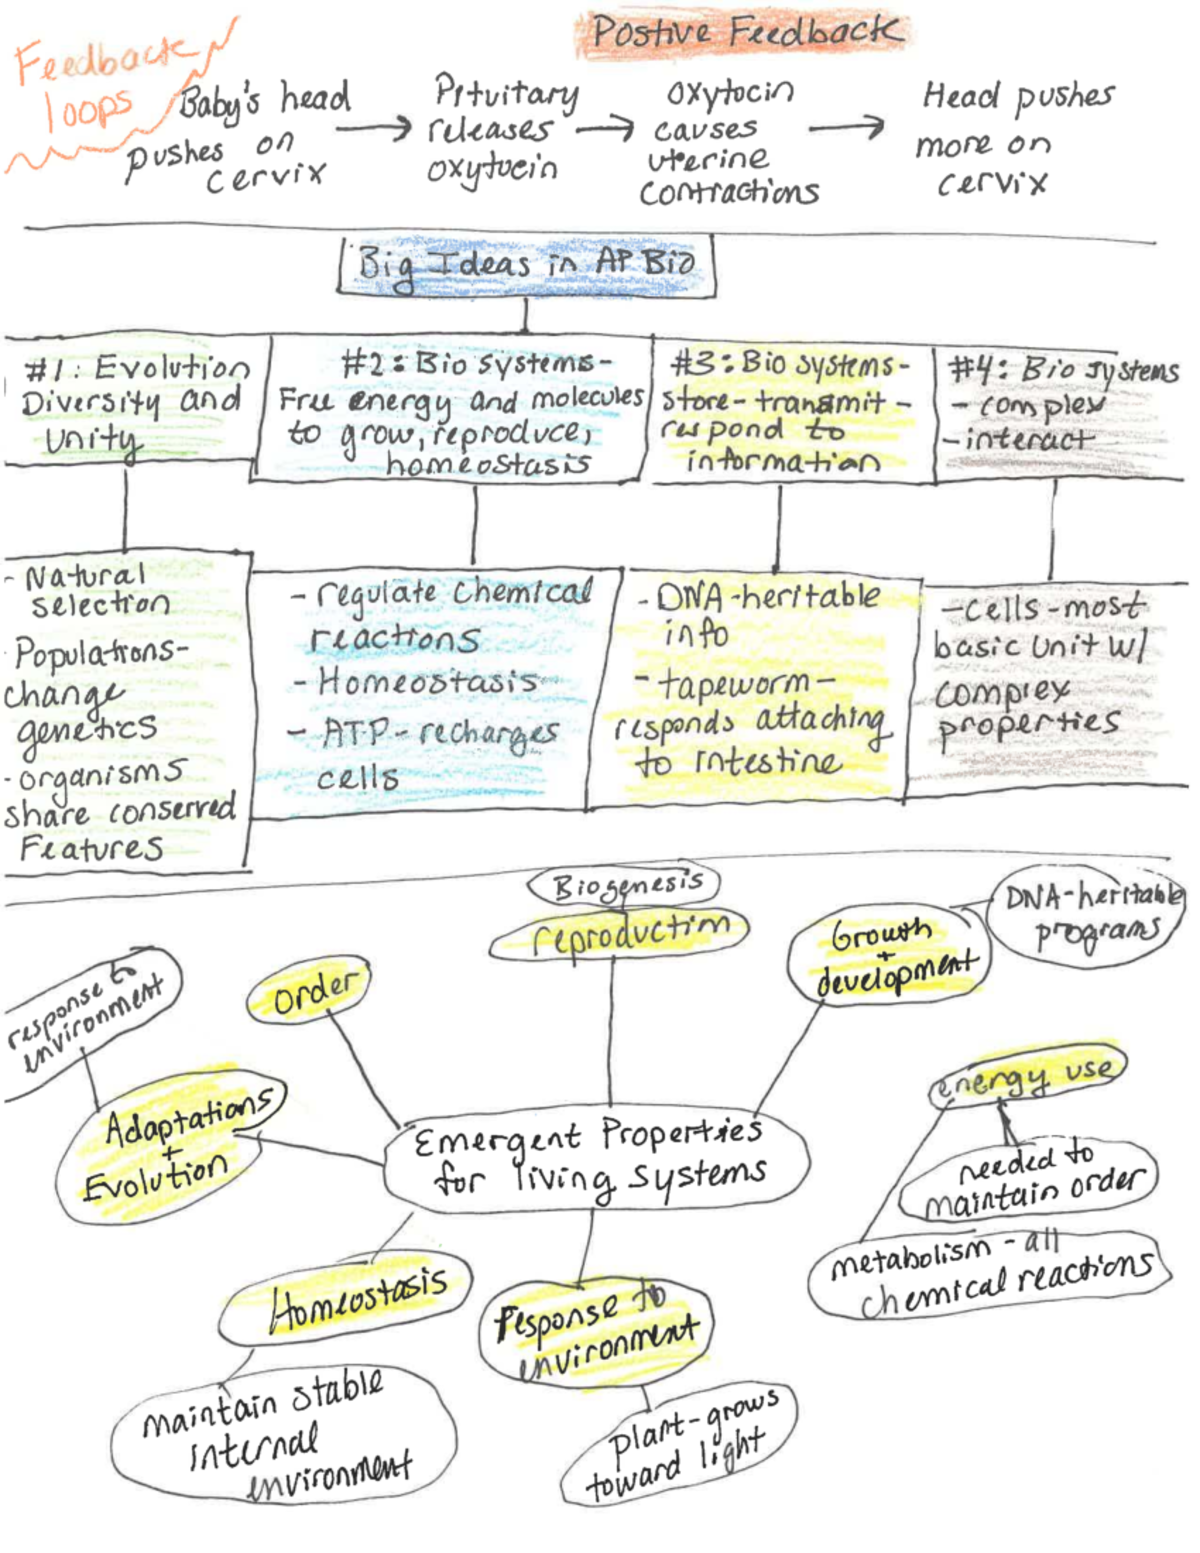 Postive Feedback
Feedback
loops
Baby's head
pushes on
cervix
Pituitary
releases
oxytocin
oxytocin
causes
uterine
contractions
Head pushes
more on
cervix
Big Ideas in AP Bio
#1: Evolution
Diversity and
Unity
#2: Bio systems-
Free energy and molecules
to grow, reproduce,
homeostasis
#3: Bio systems-
store-transmit-
respond to
information
#4: Bio systems
- complex
-interact
- Natural
selection
Populations-
change
genetics
- organisms
share conserved
Features
- regulate chemical
reactions
- Homeostasis
- ATP-recharges
cells
- DNA-heritable
info
- tapeworm-
responds attaching
to intestine
-cells-most
basic unit w/
comprex
properties
Biogenesis
reproduction
Growth
+
development
DNA-heritable
programs
order
response to
environment
Adaptations
+
Evolution
Emergent Properties
for living systems
energy use
needed to
maintain order
metabolism - all
chemical reactions
Homeostasis
maintain stable
internal
environment
Response to
environment
plant-grows
toward light